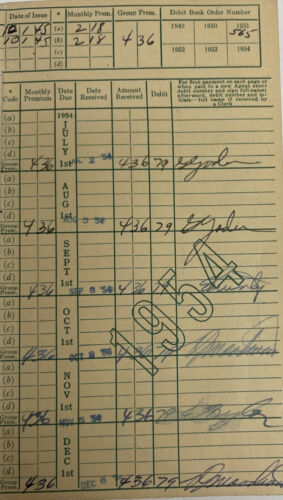 Date of Issue Monthly Prem. Group Prem. Debit Book Order Number
10 1 45 (a) 2 18 1949 1950 1951
565
10 1 45 (b) 2 18 4 36
(c) 1952 1953 1954
(d)
* Code Monthly Premium Date Due Date Received Amount Received Debit For first payment on each page or when paid to a new Agent enter debit number and sign full name; afterward, debit number and initials—full name if received by a Clerk
(a) 1954
(b) JULY
(c)
(d)
Group Prem. 436 1st 2 '54 4 36 79
(a)
(b) AUG
(c)
(d)
Group Prem. 4 36 1st AUG 5 '54 4 36 79 G Yoder
(a)
(b) SEPT
(c)
(d)
Group Prem. 436 1st SEP 6 '54 436
1954
(a)
(b) OCT
(c)
(d)
Group Prem. 436 1st OCT '54 436
(a)
(b) NOV
(c)
(d)
Group Prem. 436 1st NOV 5 '54 436 79
(a)
(b) DEC
(c)
(d)
Group Prem. 436 1st DEC 6 436 79